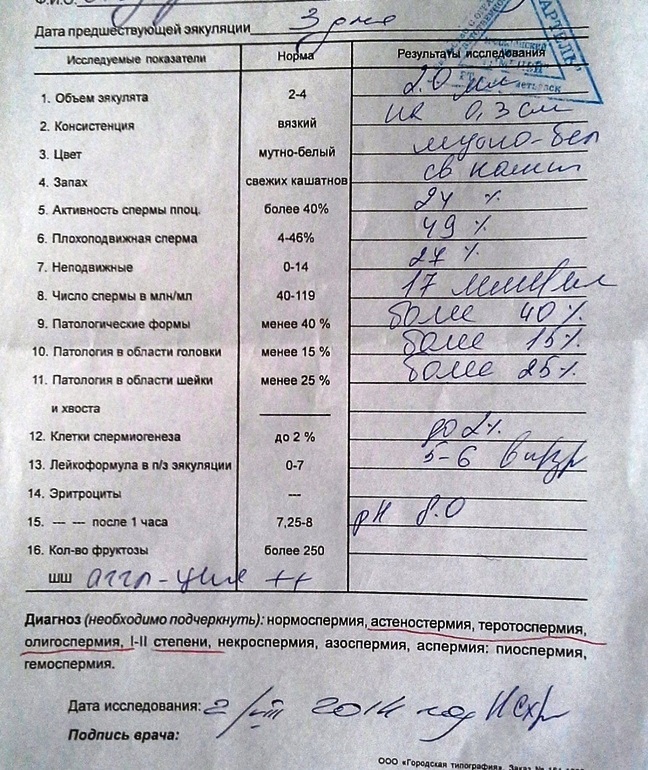 Дата предшествующей эякуляции 3 дня
Исследуемые показатели Норма Результаты исследования
1. Объем эякулята 2-4 2.0 мл
2. Консистенция вязкий 0,3 см
3. Цвет мутно-белый мутно-бел
4. Запах свежих кашатнов св кашт
5. Активность спермы ппоц. более 40% 24 %
6. Плохоподвижная сперма 4-46% 49 %
7. Неподвижные 0-14 27 %
8. Число спермы в млн/мл 40-119 17
9. Патологические формы менее 40 % более 40 %
10. Патология в области головки менее 15 % более 15%
11. Патология в области шейки менее 25 % более 25%
и хвоста
12. Клетки спермиогенеза до 2 % до 2%
13. Лейкоформула в п/з эякуляции 0-7 5-6 в п/зр
14. Эритроциты ---
15. --- --- после 1 часа 7,25-8 pH 8.0
16. Кол-во фруктозы более 250
ШШ аггл-ция ++
Диагноз (необходимо подчеркнуть): нормоспермия, астеностермия, теротоспермия,
олигоспермия, I-II степени, некроспермия, азоспермия, аспермия: пиоспермия,
гемоспермия.
Дата исследования: 2/VIII 2014 год
Подпись врача:
ООО «Городская типография». Заказ №